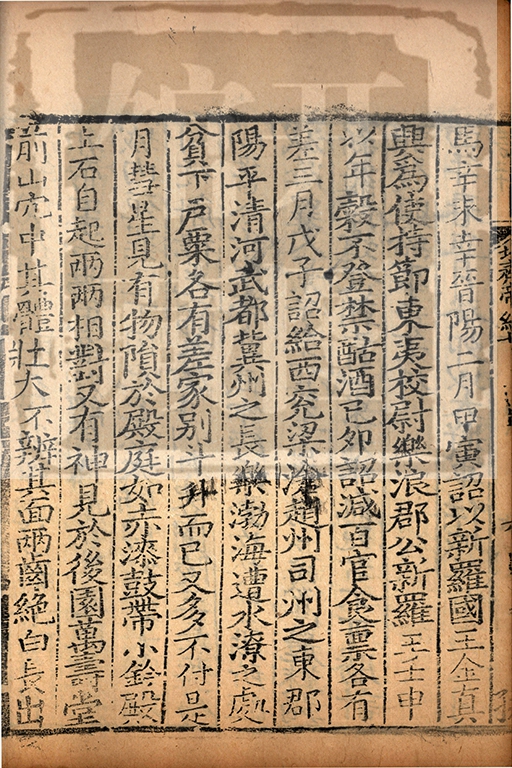 馬辛未幸晉陽二月甲寅詔以新羅國王金真
興爲使持節東夷校尉樂浪郡公新羅王壬申
以年穀不登禁酤酒己夘詔減百官食禀各有
差三月戊子詔給西兗梁滄趙州司州之東郡
陽平清河武都冀州之長樂渤海遭水潦之處
貧下戸粟各有差家别斗升而已又多不付是
月彗星見有物隕於殿庭如赤漆鼓帶小鈴殿
上石自起兩兩相對又有神見於後園萬壽堂
前山穴中其體壯大不辨其面兩齒絶白長出